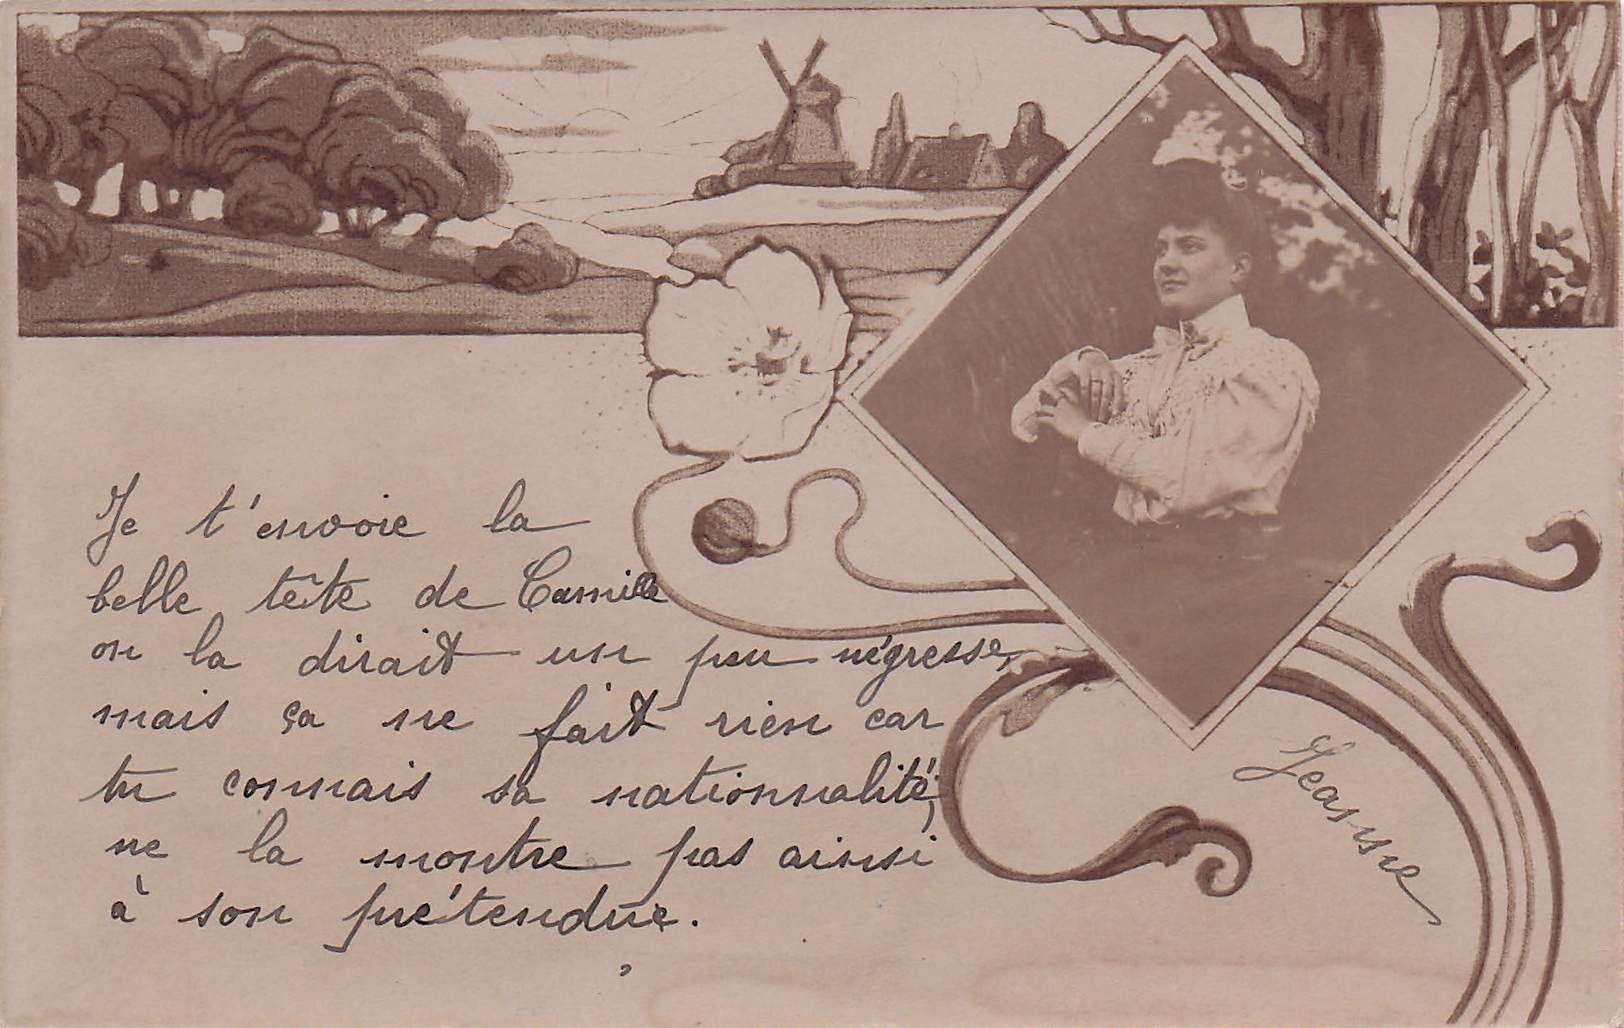 Je t'envoie la
belle tête de Camille
on la dirait un peu négresse,
mais ça ne fait rien car
tu connais sa nationnalité,
ne la montre pas ainsi
à son prétendue.
Jeanne